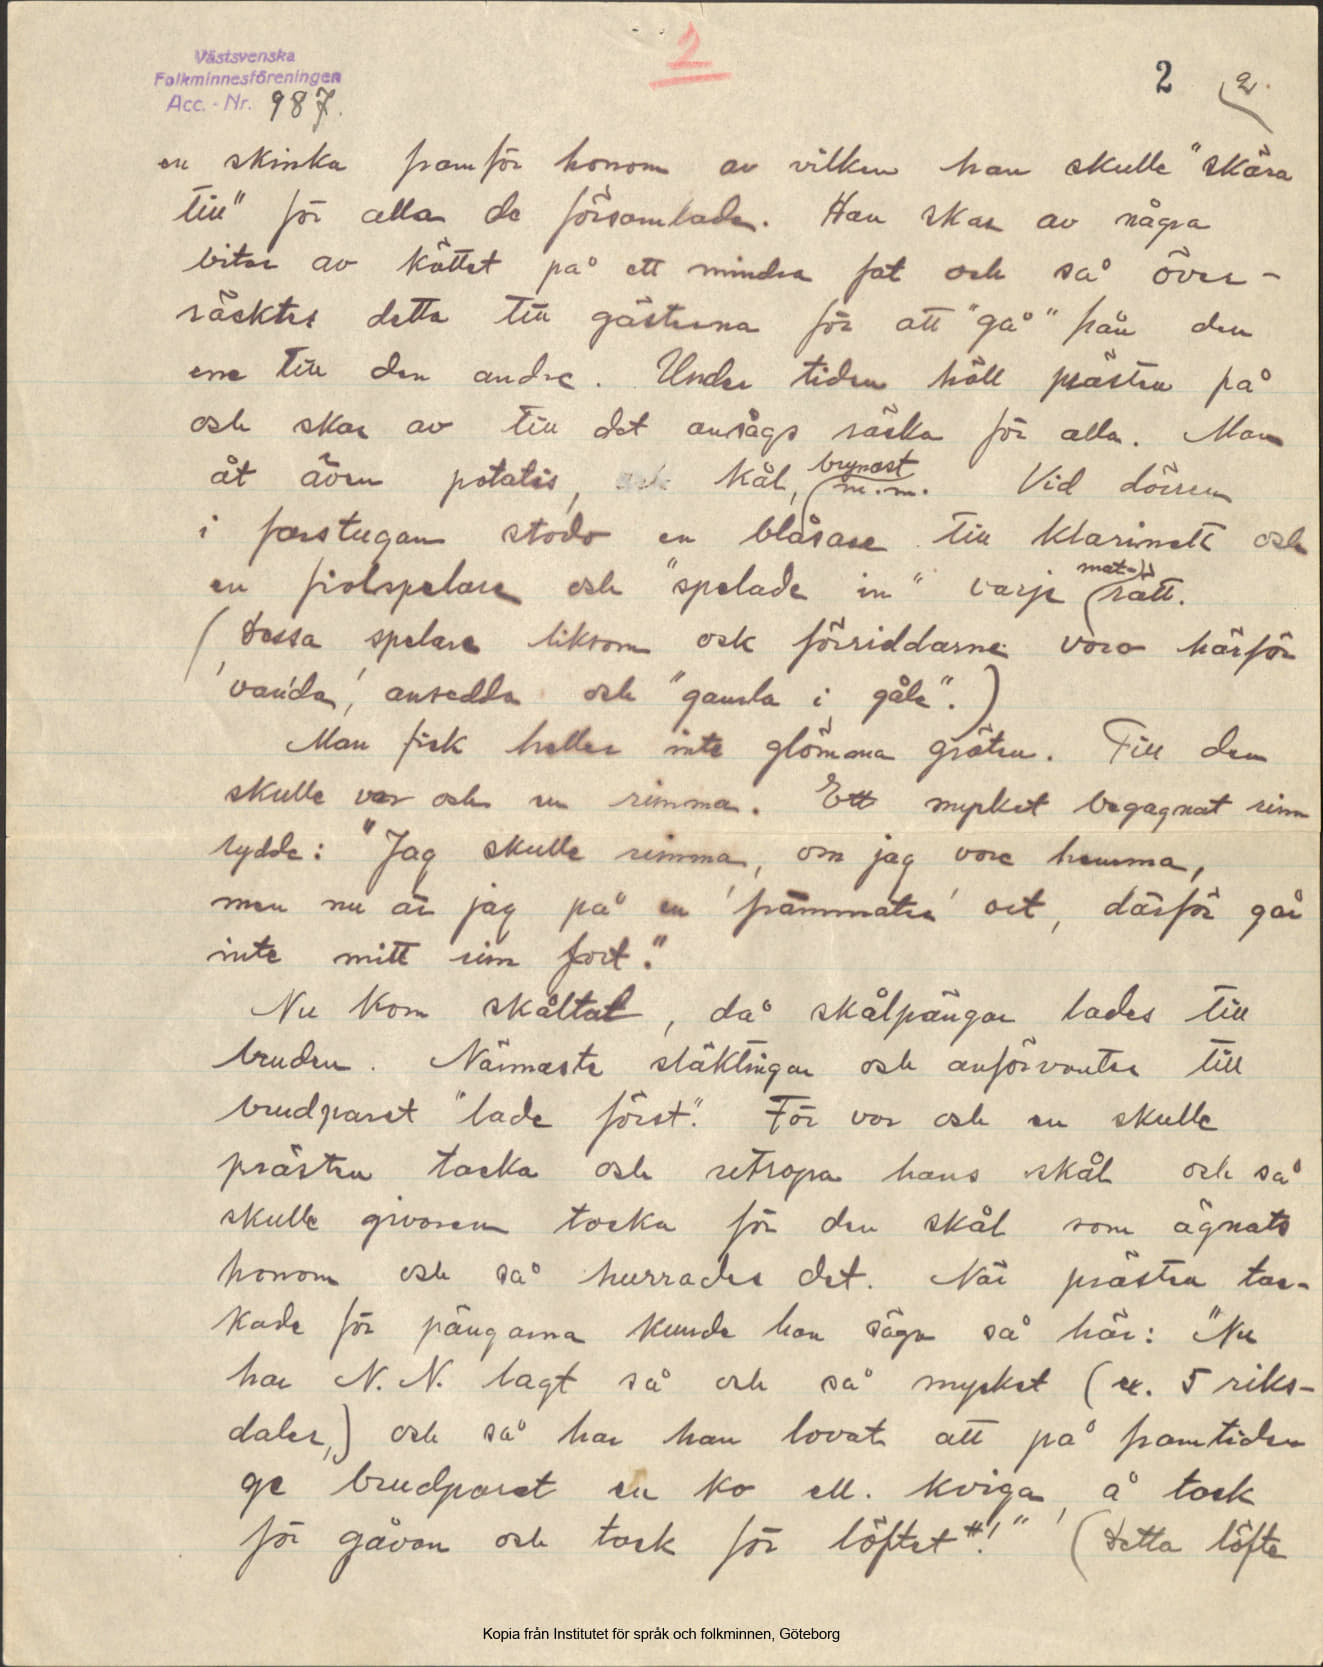 Västsvenska
Folkminnesföreningen
Acc. - Nr. 987.
2
2 2.
en skinka framför honom av vilken han skulle "skära
till" för alla de församlade. Han skar av några
bitar av köttet på ett mindre fat och så över-
räcktes detta till gästerna för att "gå" från den
ene till den andre. Under tiden höll prästen på
och skar av till det ansågs räcka för alla. Man
åt även potatis, och kål, brynost m.m. Vid dörren
i farstugan stodo en blåsare till klarinett och
en fiolspelare och "spelade in" varje mat-rätt.
(Dessa spelare liksom ock förriddarne voro härför
'vanda', ansedda och "gamla i gåle".)
Man fick heller inte glömma gröten. Till den
skulle var och en rimma. Ett mycket begagnat rim
lydde: "Jag skulle rimma, om jag vore hemma,
men nu är jag på en 'främmatre' ort, därför går
inte mitt rim fort."
Nu kom skåltal, då skålpängar lades till
bruden. Närmaste släktingar och anförvanter till
brudparet "lade först". För var och en skulle
prästen tacka och utropa hans skål och så
skulle givaren tacka för den skål som ägnats
honom och så hurrades det. När prästen tac-
kade för pängarna kunde han säga så här: "Nu
har N. N. lagt så och så mycket (ex. 5 riks-
daler,) och så har han lovat att på framtiden
ge brudparet en ko ell. kviga, å tack
för gåvan och tack för löftet!" (Detta löfte
Kopia från Institutet för språk och folkminnen, Göteborg